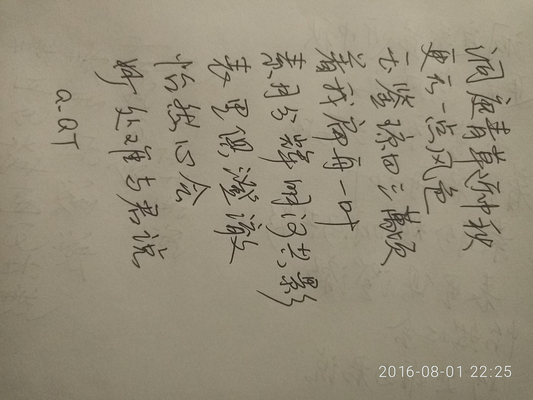 洞庭青草近中秋
更无一点风色
玉鉴琼田三萬顷
着我扁舟一叶
素月分辉明河共影
表里俱澄澈
怡然心会
妙处难与君说
a.QT
2016-08-01 22:25